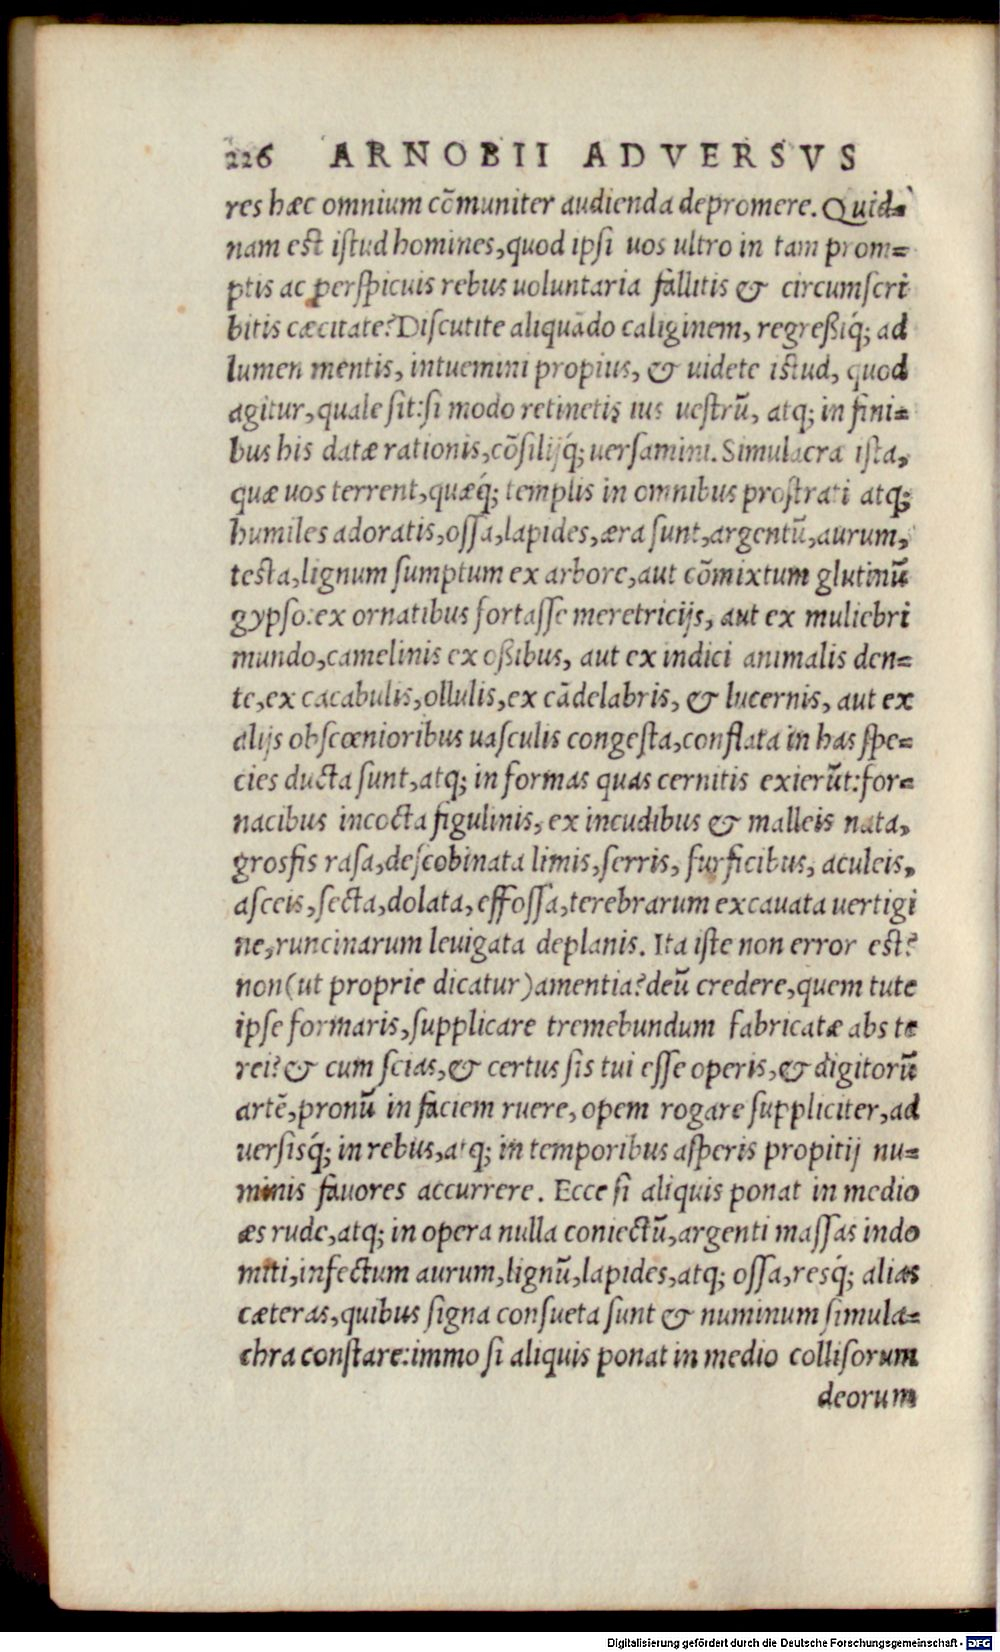 226 ARNOBII ADVERSVS
res hæc omnium cōmuniter audienda depromere. Quid-
nam est istud homines, quod ipsi uos ultro in tam prom-
ptis ac perspicuis rebus uoluntaria fallitis & circumscri
bitis cæcitate? Discutite aliquādo caliginem, regreßiq́; ad
lumen mentis, intuemini propius, & uidete istud, quod
agitur, quale sit: si modo retinetis ius uestrū, atq; in fini-
bus his datæ rationis, cōsilijq́; uersamini. Simulacra ista,
quæ uos terrent, quæq́; templis in omnibus prostrati atq;
humiles adoratis, ossa, lapides, æra sunt, argentū, aurum,
testa, lignum sumptum ex arbore, aut cōmixtum glutinū
gypso: ex ornatibus fortasse meretricijs, aut ex muliebri
mundo, camelinis ex oßibus, aut ex indici animalis den-
te, ex cacabulis, ollulis, ex cādelabris, & lucernis, aut ex
alijs obscœnioribus uasculis congesta, conflata in has spe-
cies ducta sunt, atq; in formas quas cernitis exierūt: for-
nacibus incocta figulinis, ex incudibus & malleis nata,
grosfis rasa, descobinata limis, serris, furficibus, aculeis,
asceis, secta, dolata, effossa, terebrarum excauata uertigi
ne, runcinarum leuigata deplanis. Ita iste non error est?
non (ut proprie dicatur) amentia? deū credere, quem tute
ipse formaris, supplicare tremebundum fabricatæ abs te
rei? & cum scias, & certus sis tui esse operis, & digitorū
artē, pronū in faciem ruere, opem rogare suppliciter, ad
uersisq́; in rebus, atq; in temporibus asperis propitij nu-
minis fauores accurrere. Ecce si aliquis ponat in medio
æs rude, atq; in opera nulla coniectū, argenti massas indo
miti, infectum aurum, lignū, lapides, atq; ossa, resq́; alias
cæteras, quibus signa consueta sunt & numinum simula-
chra constare: immo si aliquis ponat in medio collisorum
deorum
Digitalisierung gefördert durch die Deutsche Forschungsgemeinschaft - DFG